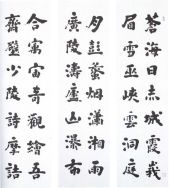 蒼海日赤城霞峨
眉雪巫峽雲洞庭
月彭蠡煙瀟湘雨
廣陵濤廬山瀑布
合宇宙奇觀繪吾
齋壁少陵詩摩詰